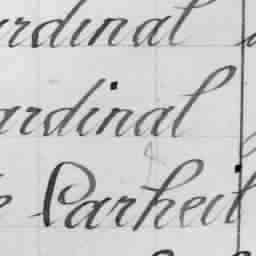 ardinal
ardinal
Parheil